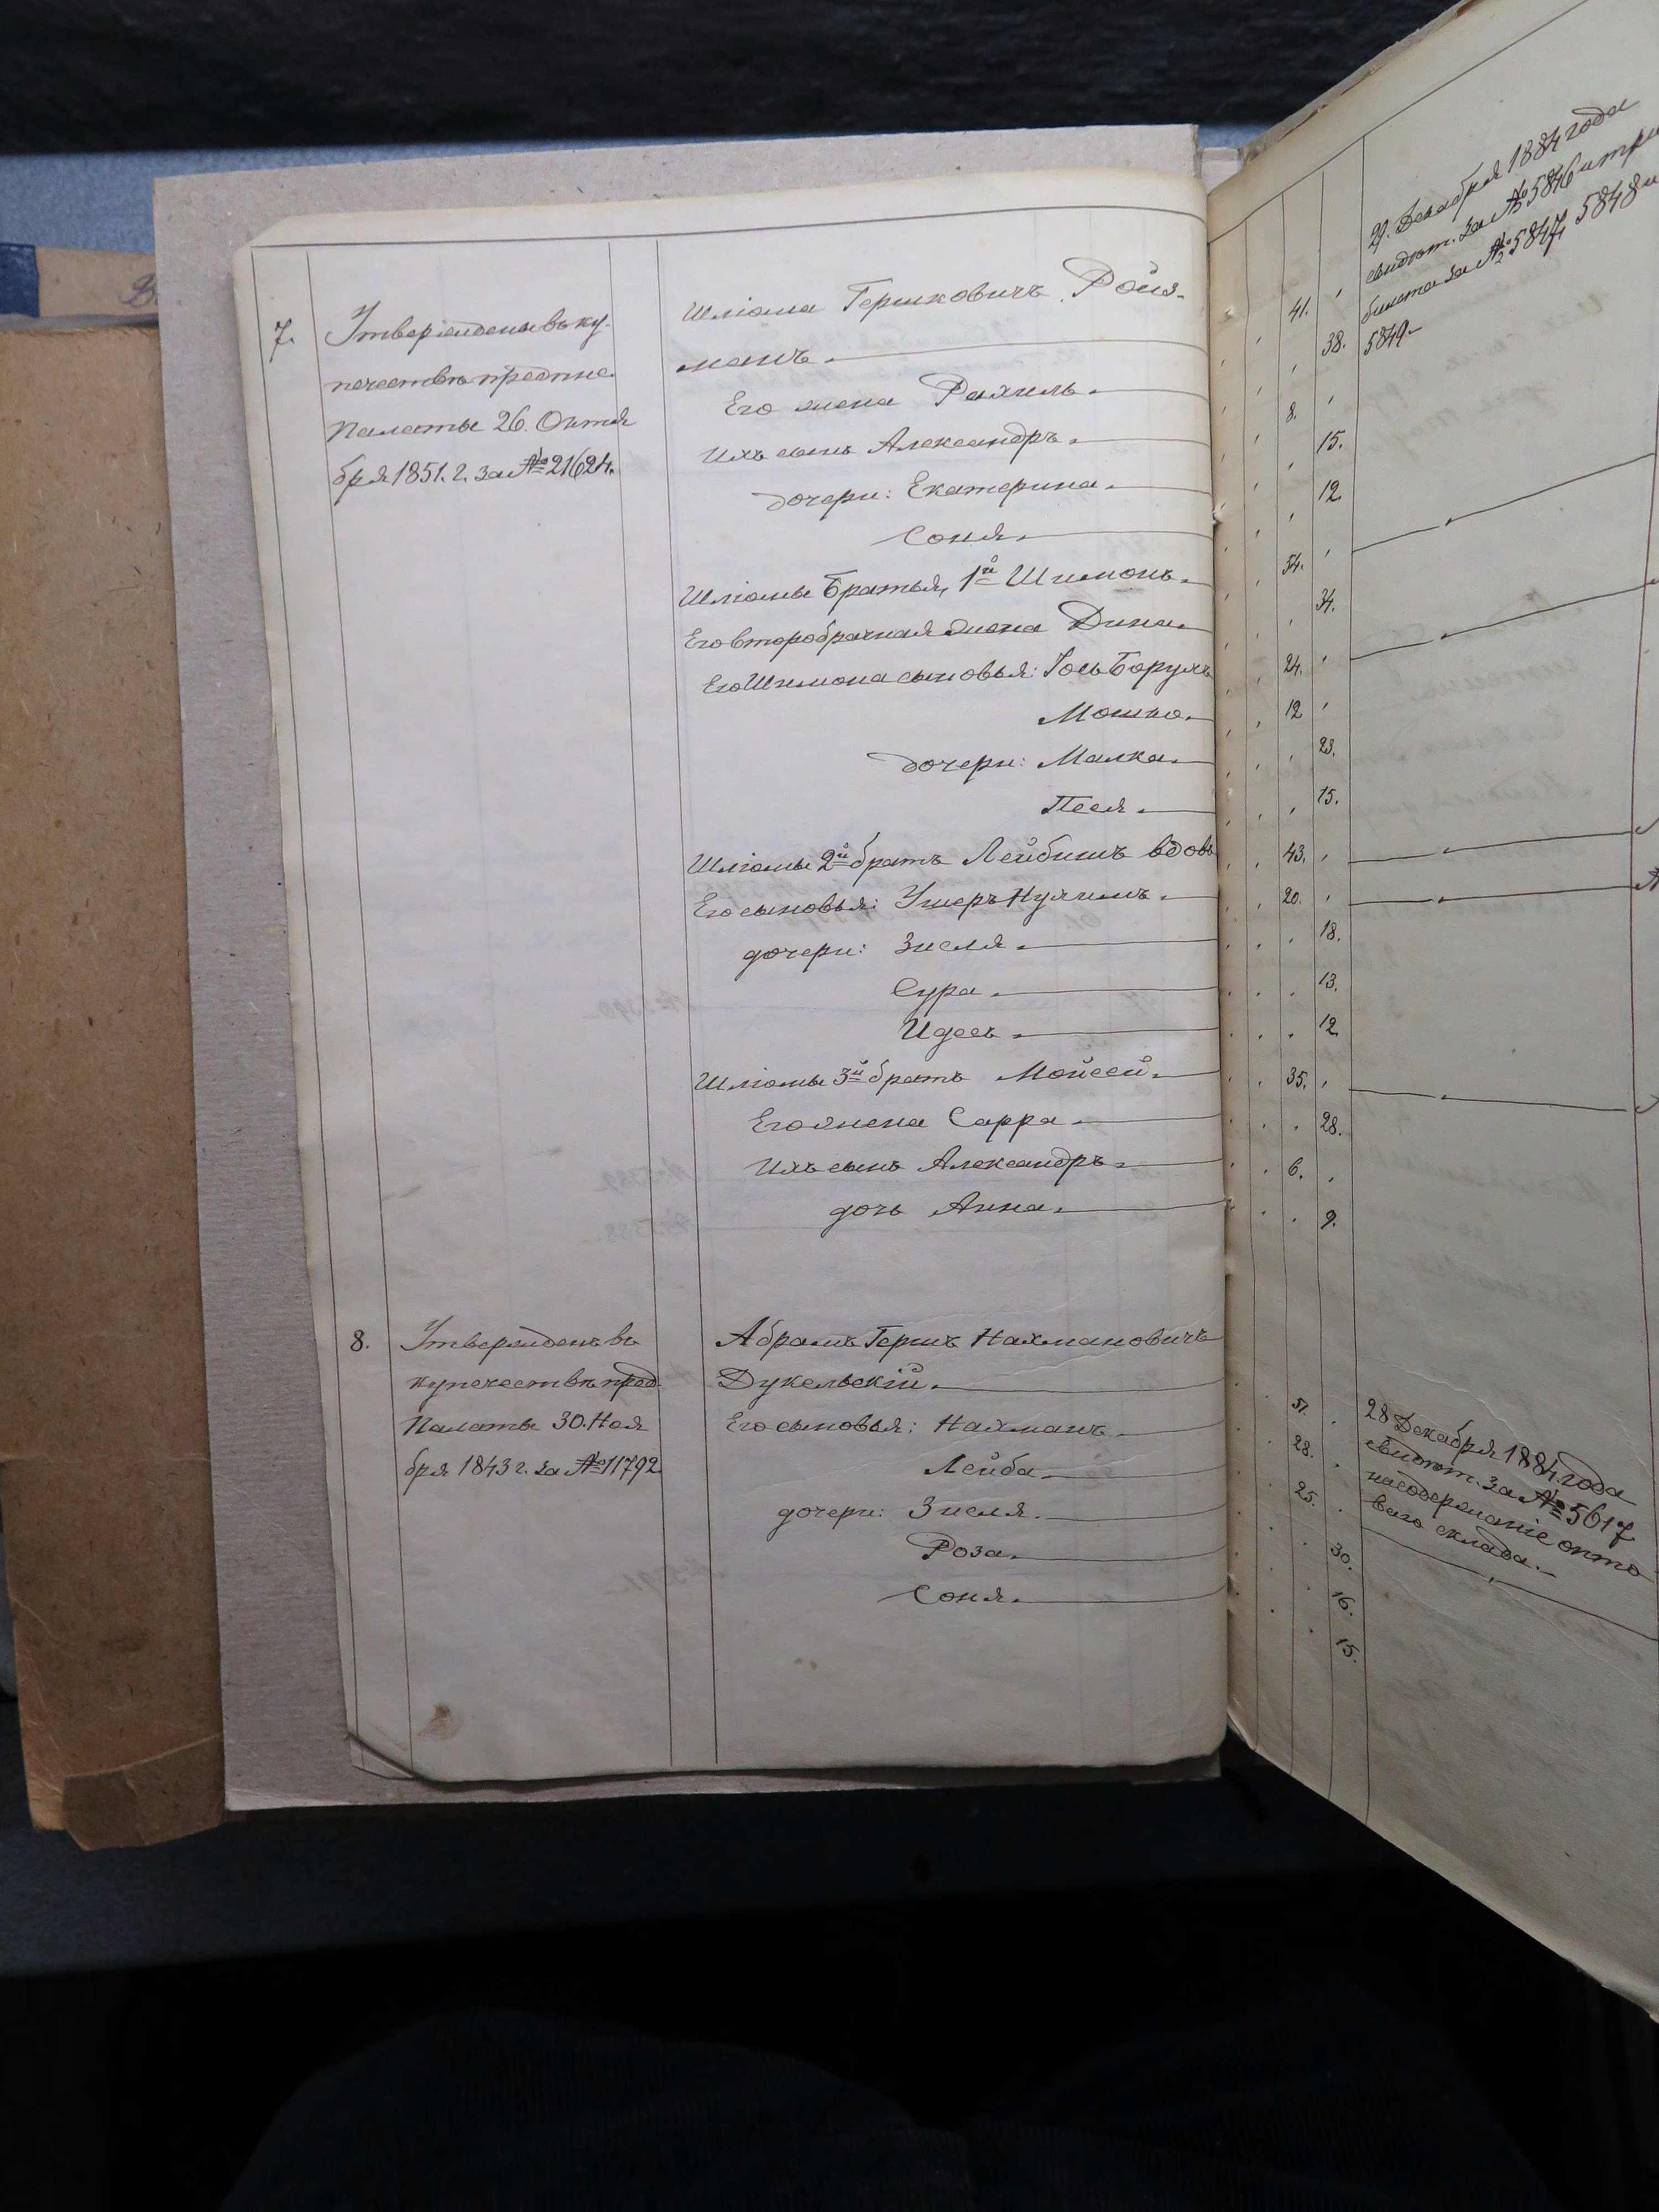 7.
Утверждены въ ку-
печествѣ предпис.
Палаты 26. Октя
бря 1851. г. за № 21624.
Шліома Гершковичъ Ройз-
манъ.
Его жена Рахиль.
Ихъ сынъ Александръ.
дочери: Екатерина.
Соня.
Шліомы братья, 1й Шимонъ.
Его второбрачная жена Дина.
Его Шимона сыновья: Іось Борухъ
Мошко.
дочери: Малка.
Песя.
Шліомы 2й братъ Лейбишъ вдовъ
Его сыновья: Ушеръ Нухимъ.
дочери: Зисля.
Сура.
Идесъ.
Шліомы 3й братъ Мойсей.
Его жена Сарра.
Ихъ сынъ Александръ.
дочь Анна.
8.
Утвержденъ въ
купечествѣ пред.
Палаты 30. Ноя
бря 1843 г. за № 11792.
Абрамъ Гершъ Нахмановичъ
Дукельскій.
Его сыновья: Нахманъ.
Лейба.
дочери: Зисля.
Роза.
Соня.
41.
38.
8.
15.
12.
54.
34.
24.
12
23.
15.
43.
20.
18.
13.
12
35.
28.
6.
9.
51.
28.
25.
30.
16.
15.
29. Декабря 1884 года
свидѣт. за № 5846 и три
билета за № 5847, 5848 и
5849.
28 Декабря 1884. года
свидѣт. за № 5617
на содержаніе опто
ваго склада.